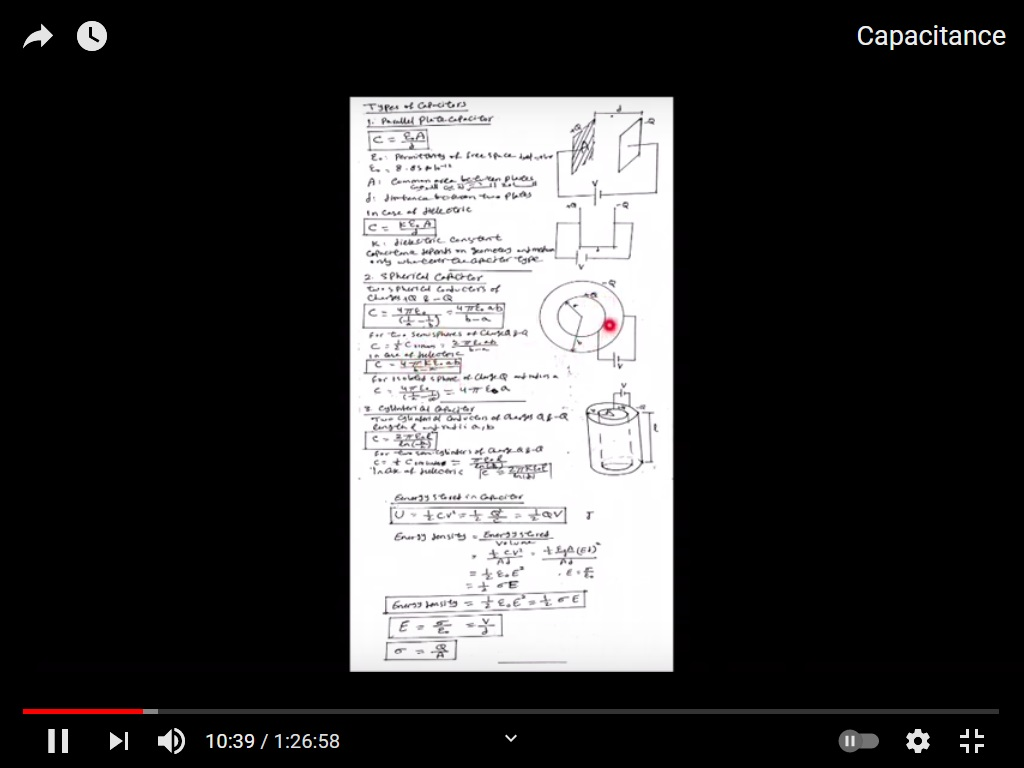 Capacitance
Types of Capacitors
1. Parallel Plate Capacitor
C = ε₀A/d
d
+Q
-Q
A
V
ε₀: Permittivity of free space
A: Common area between plates
d: distance between two plates
In case of dielectric
C = Kε₀A/d
K: dielectric constant
Capacitance depends on geometry and medium
only whatever the capacitor type
+Q
-Q
V
2. Spherical Capacitor
two spherical conductors of
Charges +Q & -Q
C = 4πε₀/(1/a - 1/b) = 4πε₀ab/b-a
For two semispheres of charge Q & -Q
C = ½ C = 2πε₀ab/b-a
In case of dielectric
C = 4πKε₀ab/b-a
-Q
+Q
a
b
V
For isolated sphere of charge Q and radius a
= 4πε₀a
3. Cylinderical Capacitor
Two Cylinderical Conductors of charges Q & -Q
length l and radii a, b
C = 2πε₀l/ln(b/a)
For two semicylinders of charge Q & -Q
In case of dielectric
V
l
Energy stored in Capacitor
U = ½CV² = ½ Q²/C = ½QV J
Energy density = Energy stored/Volume
= ½CV²/Ad = ½ε₀A(Ed)²/Ad
= ½ε₀E²
= ½σE
Energy density = ½ε₀E² = ½σE
E = σ/ε₀ = V/d
σ = Q/A
10:39 / 1:26:58